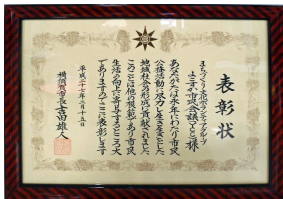 表彰状
まちづくり文化ボランティアグループ
よこすか市民会議ひとこと様
あなたがたは永年にわたり市民
公益活動に尽力し生き生きとした
地域社会の形成に貢献されました
このことは他の模範であり市民
生活の向上に寄与するところ大
でありますのでここに表彰します
平成二十七年二月十五日
横須賀市長 吉田雄人